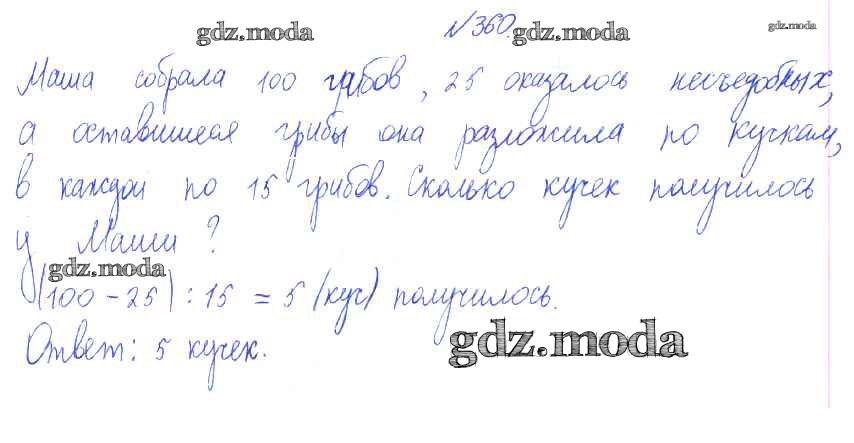 №360.
gdz.moda gdz.moda gdz.moda
Маша собрала 100 грибов, 25 оказалось несъедобных,
а оставшиеся грибы она разложила по кучкам,
в каждой по 15 грибов. Сколько кучек получилось
у Маши?
gdz.moda
(100 - 25) : 15 = 5 (куч) получилось.
Ответ: 5 кучек.
gdz.moda